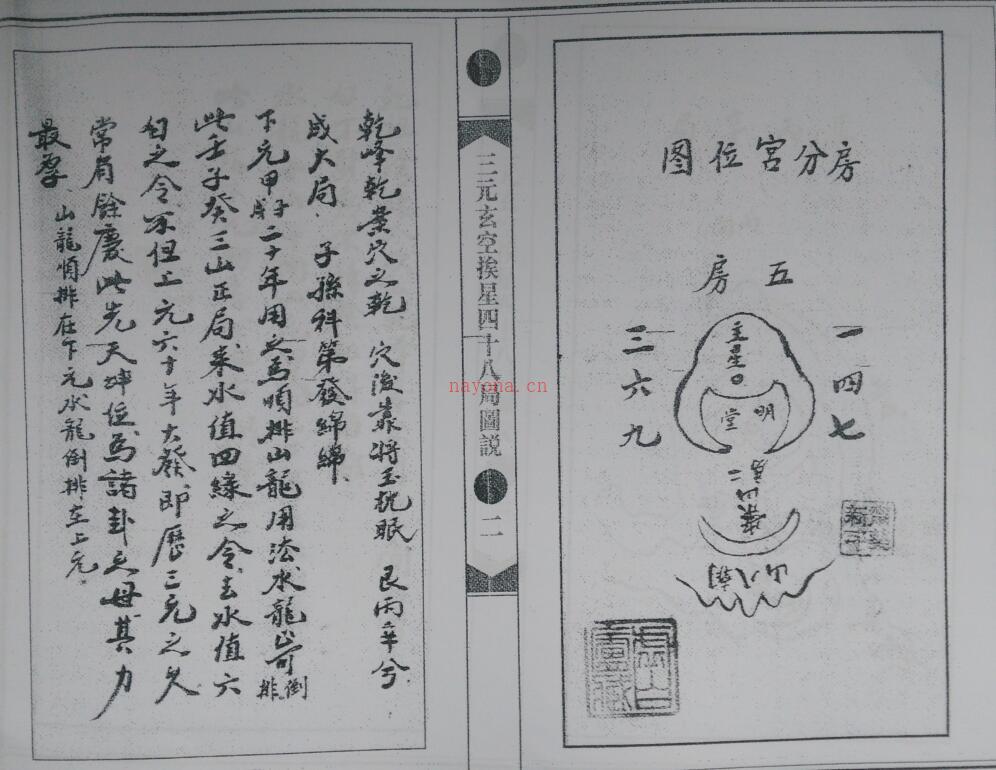 房分宮位图
五房
一四七
主星
明堂
三六九
三元玄空挨星四十八局圖説
二
乾峰乾業穴之乾 穴後靠将玉枕眠 艮丙辛兮
成大局 子孫科第發綿綿
下元甲子二十年用之為順排山龍用法水龍
倒排
此壬子癸三山正局来水值四緑之令去水值六
白之令不但上元六十年大發即歷三元之久
常有餘慶此先天坤位為諸卦之母其力
最厚 山龍順排在下元水龍倒排在上元
nayona.cn